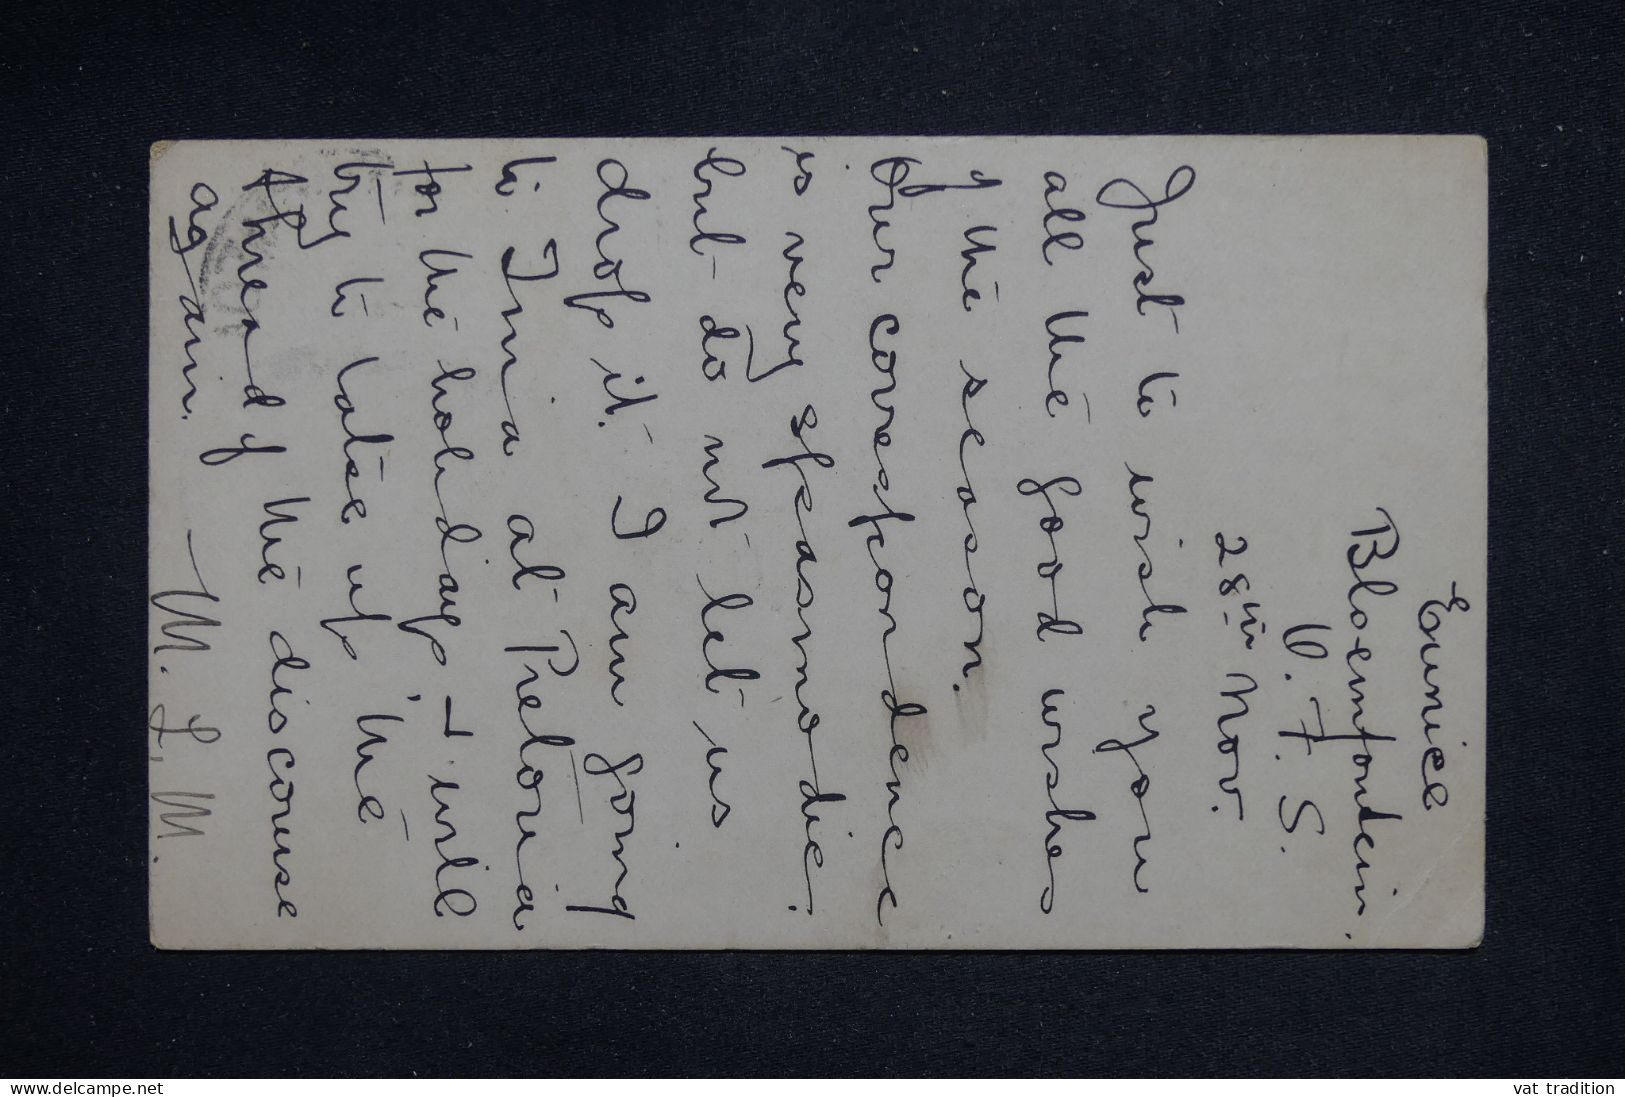 Eunice
Bloemfontein.
O. F. S.
28th Nov.
Just to wish you
all the good wishes
of the season.
Our correspondence
is very spasmodic.
but do not let us
drop it. I am going
to Irina at Pretoria
for the holidays + will
try to take up the
thread of the discourse
again.
M. L. M.
www.delcampe.net
vat tradition